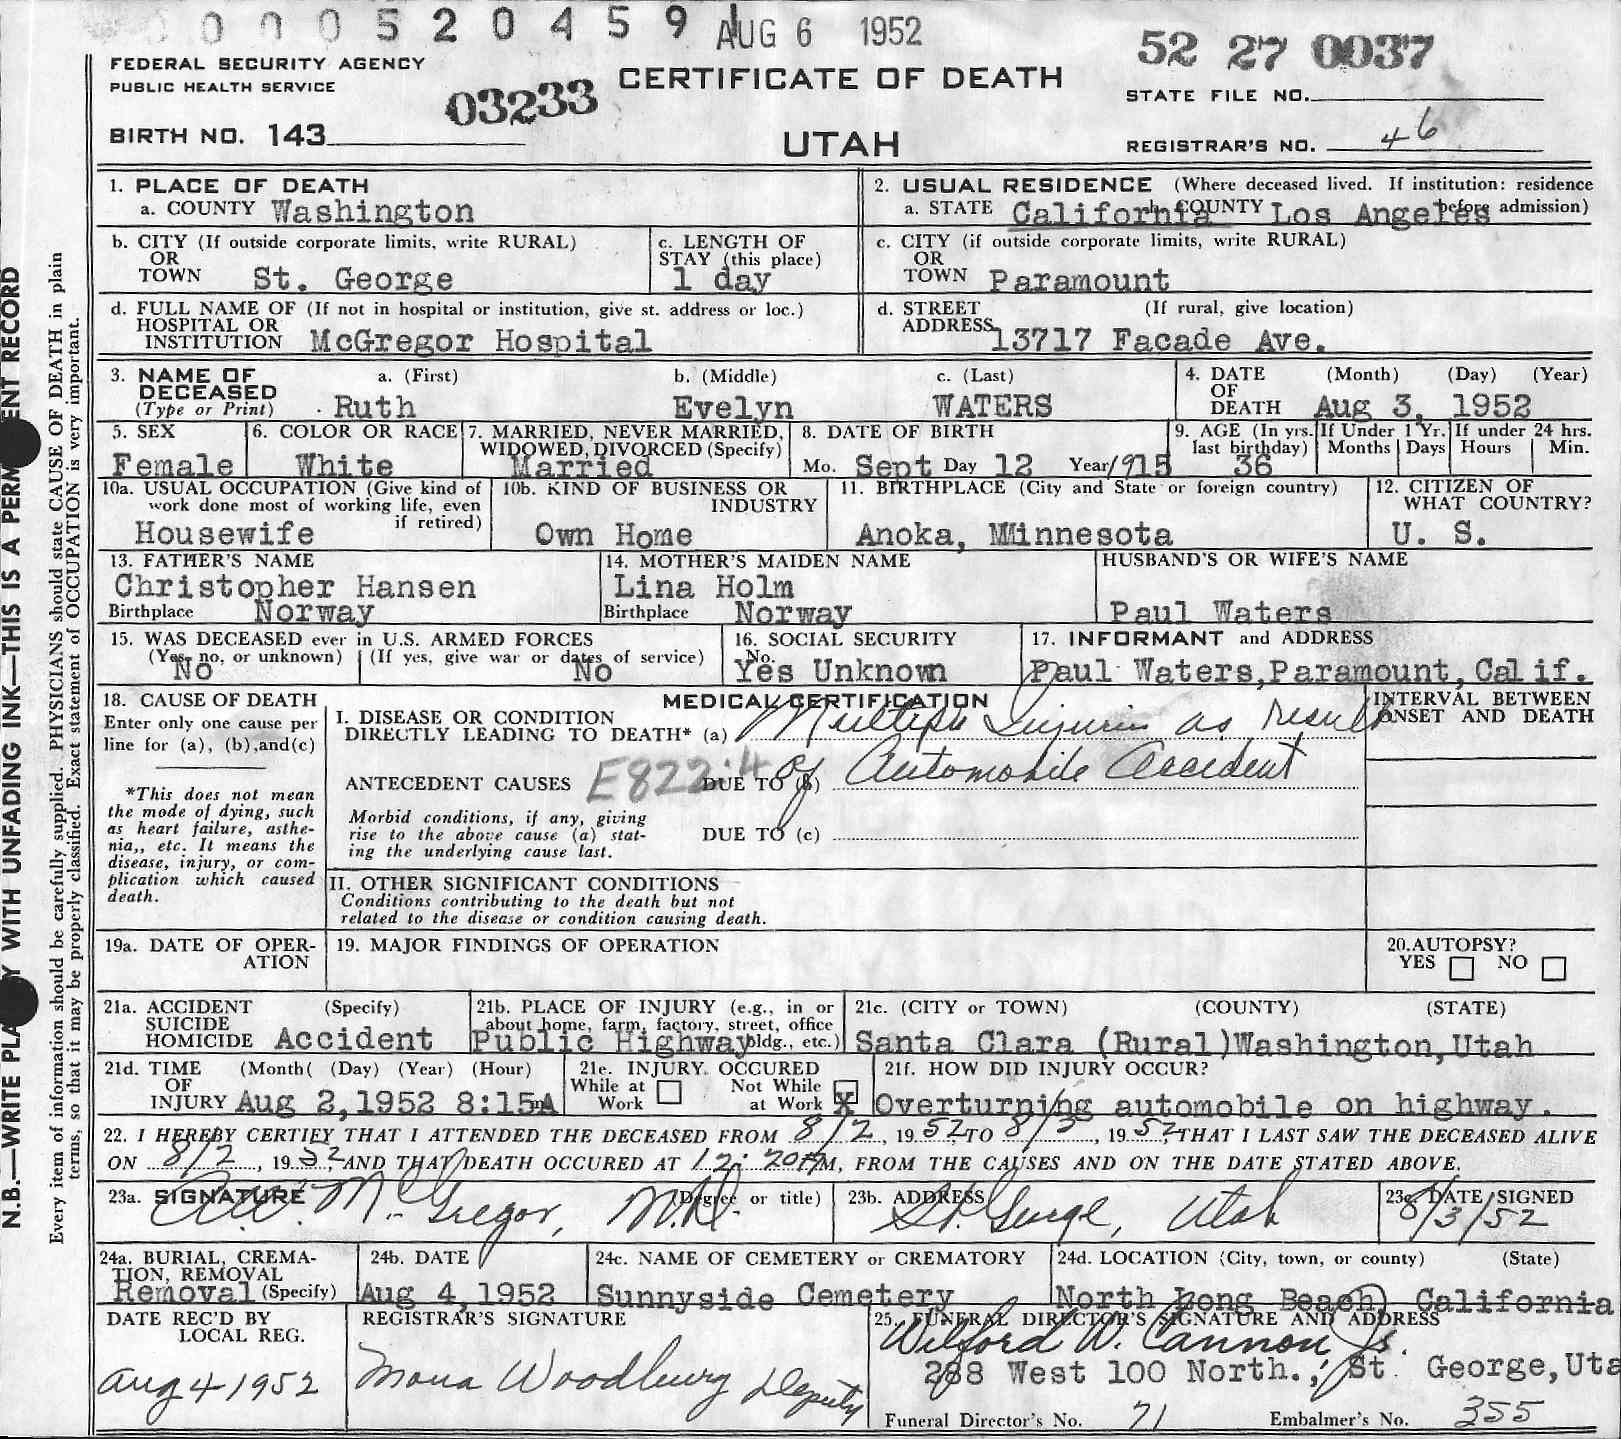 0 0 0 0 5 2 0 4 5 9 AUG 6 1952
52 27 0037
FEDERAL SECURITY AGENCY
PUBLIC HEALTH SERVICE
03233
CERTIFICATE OF DEATH
STATE FILE NO.
BIRTH NO. 143
UTAH
REGISTRAR'S NO. 46
1. PLACE OF DEATH
a. COUNTY Washington
2. USUAL RESIDENCE (Where deceased lived. If institution: residence before admission)
a. STATE California b. COUNTY Los Angeles
b. CITY (If outside corporate limits, write RURAL)
OR
TOWN St. George
c. LENGTH OF
STAY (this place)
1 day
c. CITY (if outside corporate limits, write RURAL)
OR
TOWN Paramount
d. FULL NAME OF (If not in hospital or institution, give st. address or loc.)
HOSPITAL OR
INSTITUTION McGregor Hospital
d. STREET (If rural, give location)
ADDRESS 13717 Facade Ave.
3. NAME OF DECEASED
(Type or Print)
a. (First) b. (Middle) c. (Last)
Ruth Evelyn WATERS
4. DATE OF DEATH (Month) (Day) (Year)
Aug 3, 1952
5. SEX
Female
6. COLOR OR RACE
White
7. MARRIED, NEVER MARRIED,
WIDOWED, DIVORCED (Specify)
Married
8. DATE OF BIRTH
Mo. Sept Day 12 Year 1915
9. AGE (In yrs. last birthday)
36
If Under 1 Yr.
Months Days
If under 24 hrs.
Hours Min.
10a. USUAL OCCUPATION (Give kind of
work done most of working life, even
if retired)
Housewife
10b. KIND OF BUSINESS OR
INDUSTRY
Own Home
11. BIRTHPLACE (City and State or foreign country)
Anoka, Minnesota
12. CITIZEN OF
WHAT COUNTRY?
U. S.
13. FATHER'S NAME
Christopher Hansen
Birthplace Norway
14. MOTHER'S MAIDEN NAME
Lina Holm
Birthplace Norway
HUSBAND'S OR WIFE'S NAME
Paul Waters
15. WAS DECEASED ever in U.S. ARMED FORCES
(Yes, no, or unknown) (If yes, give war or dates of service)
No No
16. SOCIAL SECURITY
No.
Yes Unknown
17. INFORMANT and ADDRESS
Paul Waters, Paramount, Calif.
18. CAUSE OF DEATH
Enter only one cause per
line for (a), (b), and (c)
*This does not mean
the mode of dying, such
as heart failure, asthe-
nia,, etc. It means the
disease, injury, or com-
plication which caused
death.
MEDICAL CERTIFICATION
INTERVAL BETWEEN
ONSET AND DEATH
I. DISEASE OR CONDITION
DIRECTLY LEADING TO DEATH* (a) Multiple Injuries as result
ANTECEDENT CAUSES E822.4 DUE TO (b) of Automobile Accident
Morbid conditions, if any, giving
rise to the above cause (a) stat-
ing the underlying cause last.
DUE TO (c)
II. OTHER SIGNIFICANT CONDITIONS
Conditions contributing to the death but not
related to the disease or condition causing death.
19a. DATE OF OPER-
ATION
19. MAJOR FINDINGS OF OPERATION
20. AUTOPSY?
YES NO
21a. ACCIDENT (Specify)
SUICIDE
HOMICIDE Accident
21b. PLACE OF INJURY (e.g., in or
about home, farm, factory, street, office
bldg., etc.)
Public Highway
21c. (CITY or TOWN) (COUNTY) (STATE)
Santa Clara (Rural) Washington, Utah
21d. TIME (Month( (Day) (Year) (Hour)
OF
INJURY Aug 2, 1952 8:15 A m
21e. INJURY OCCURED
While at Work
Not While at Work X
21f. HOW DID INJURY OCCUR?
Overturning automobile on highway.
22. I HEREBY CERTIFY THAT I ATTENDED THE DECEASED FROM 8/2, 1952 TO 8/3, 1952, THAT I LAST SAW THE DECEASED ALIVE
ON 8/2, 1952, AND THAT DEATH OCCURED AT 12:20 AM, FROM THE CAUSES AND ON THE DATE STATED ABOVE.
23a. SIGNATURE (Degree or title)
McGregor, M.D.
23b. ADDRESS
St. George, Utah
23c. DATE SIGNED
8/3/52
24a. BURIAL, CREMA-
TION, REMOVAL
Removal (Specify)
24b. DATE
Aug 4, 1952
24c. NAME OF CEMETERY or CREMATORY
Sunnyside Cemetery
24d. LOCATION (City, town, or county) (State)
North Long Beach, California
DATE REC'D BY
LOCAL REG.
Aug 4 1952
REGISTRAR'S SIGNATURE
Mona Woodbury Deputy
25. FUNERAL DIRECTOR'S SIGNATURE AND ADDRESS
Wilford W. Cannon Jr.
288 West 100 North., St. George, Uta
Funeral Director's No. 71 Embalmer's No. 355
N.B.—WRITE PLA Y WITH UNFADING INK—THIS IS A PERM ENT RECORD
Every item of information should be carefully supplied. PHYSICIANS should state CAUSE OF DEATH in plain
terms, so that it may be properly classified. Exact statement of OCCUPATION is very important.